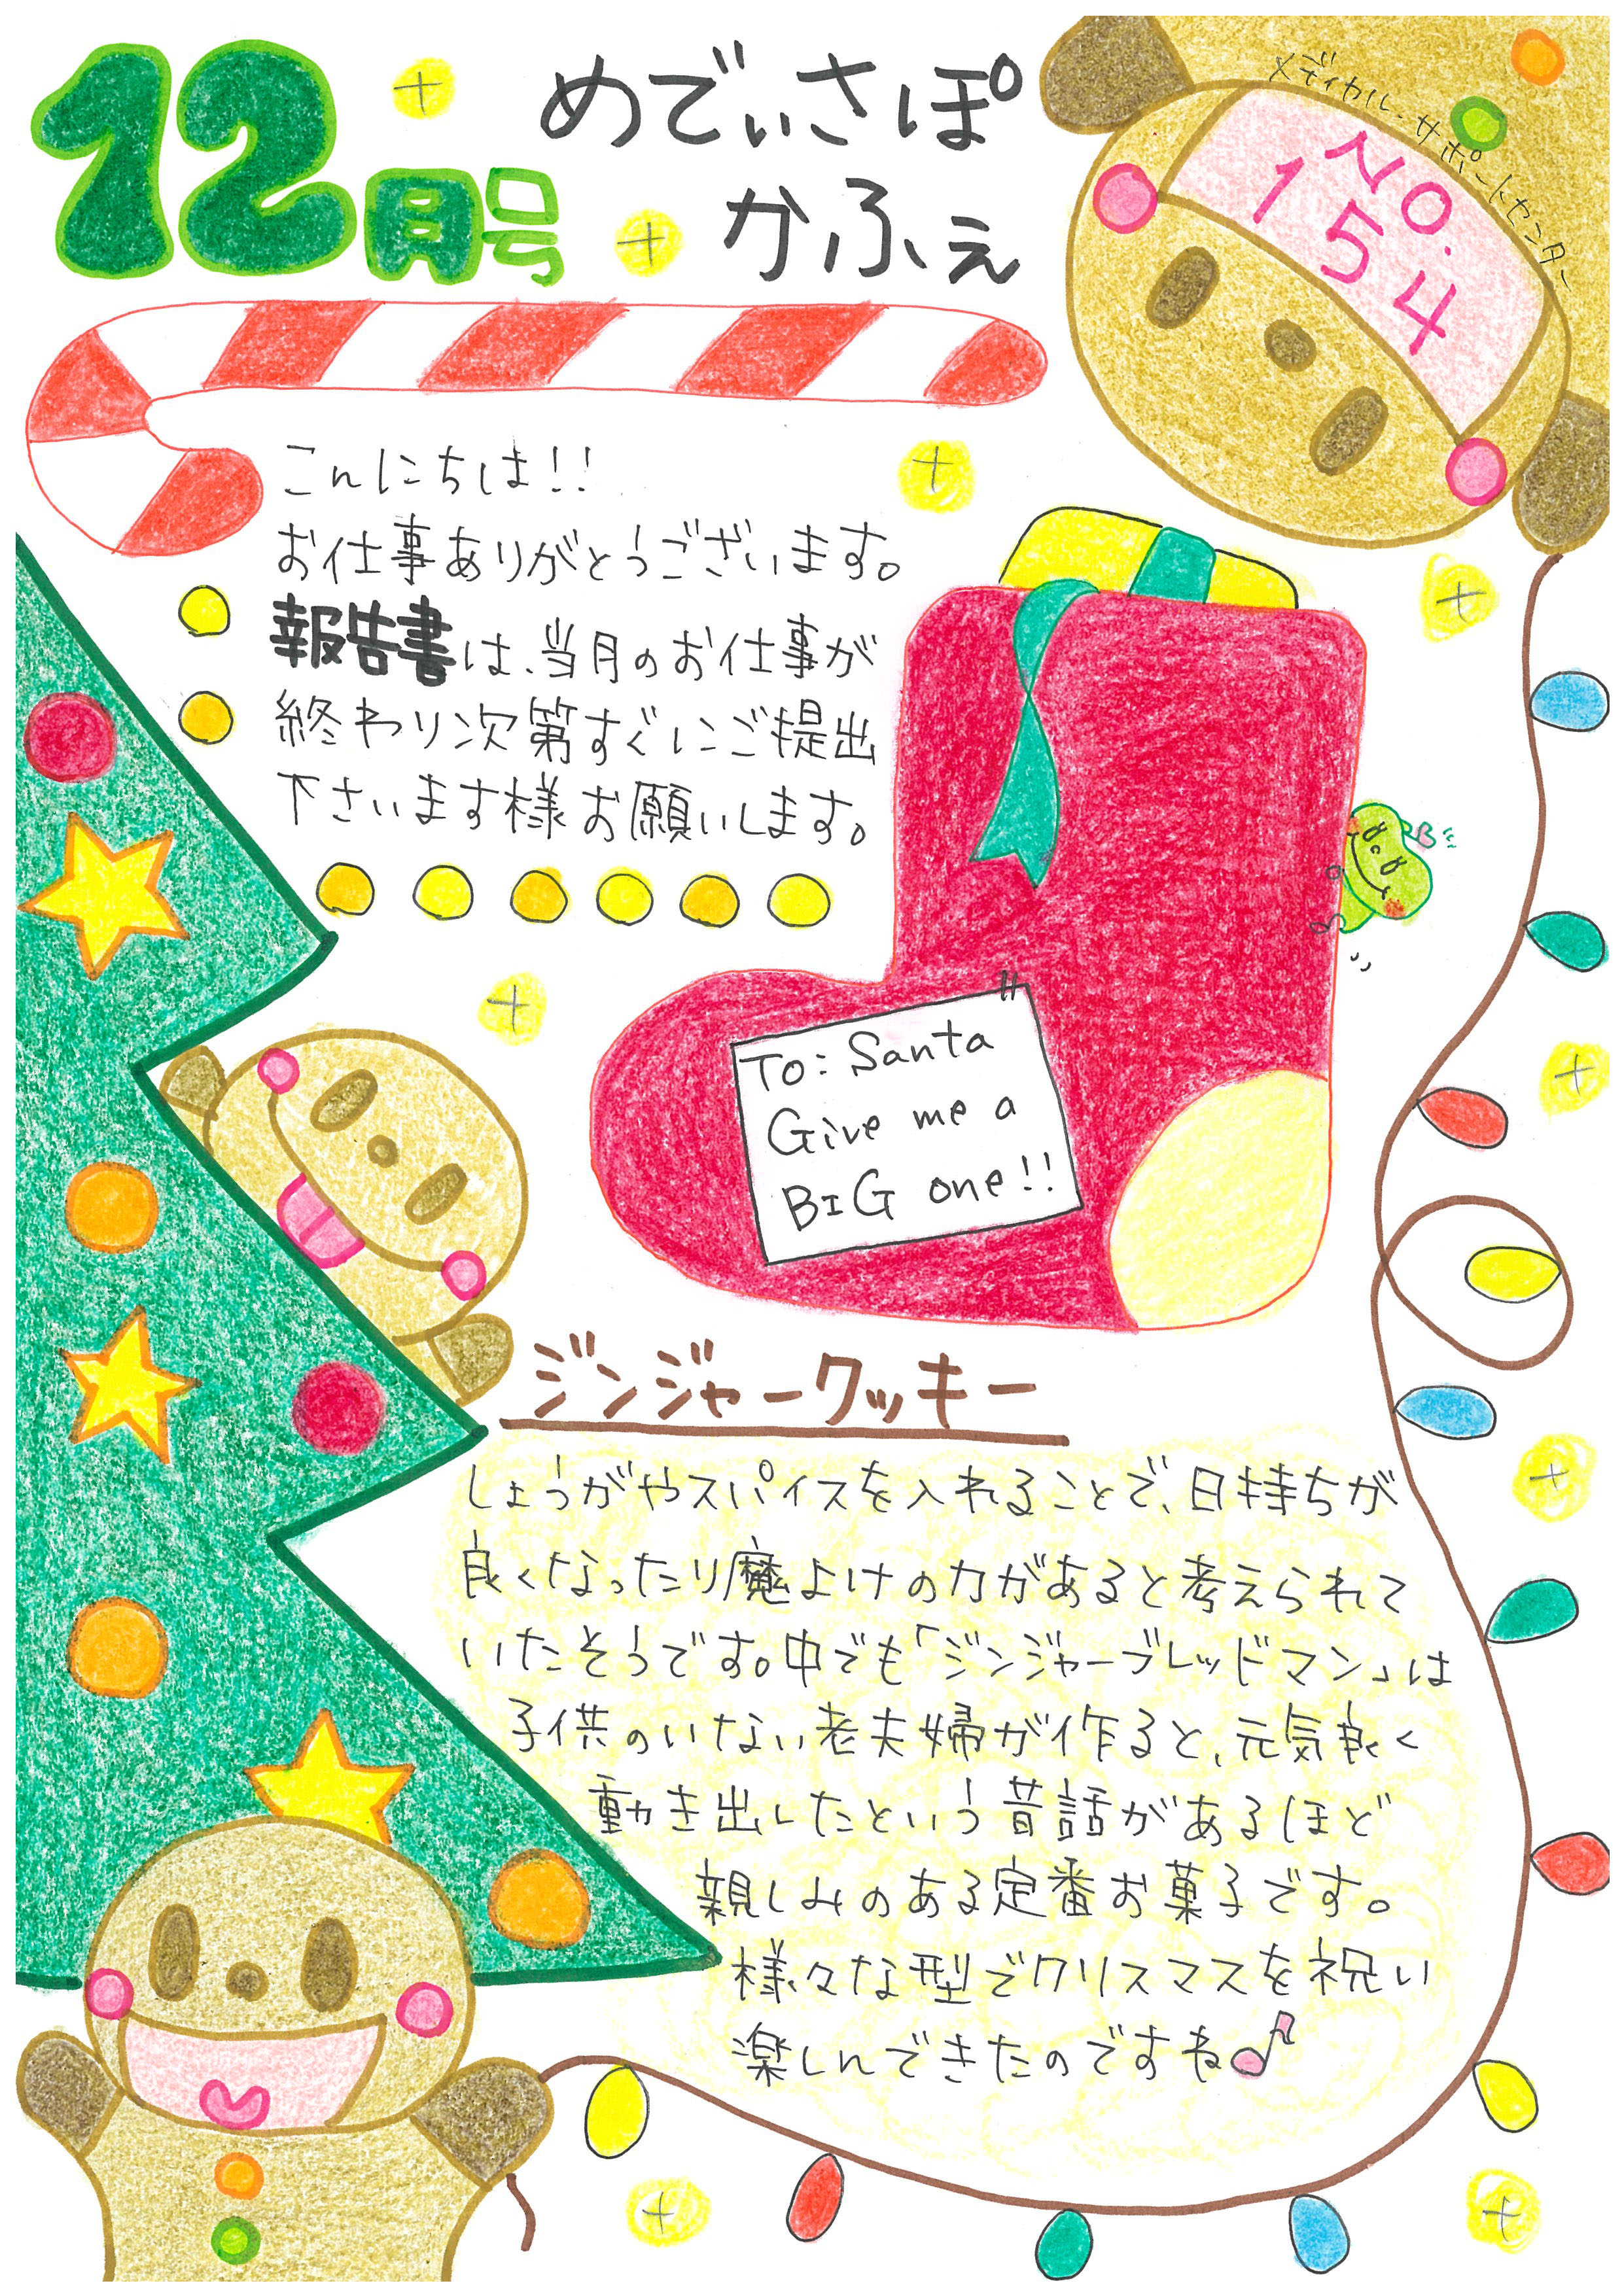 12月号
めでぃさぽ
かふぇ
メディカル・サポートセンター
No.
154
こんにちは!!
お仕事ありがとうございます。
報告書は、当月のお仕事が
終わり次第すぐにご提出
下さいます様お願いします。
To: Santa
Give me a
BIG one!!
ジンジャークッキー
しょうがやスパイスを入れることで、日持ちが
良くなったり魔よけの力があると考えられて
いたそうです。中でも「ジンジャーブレッドマン」は
子供のいない老夫婦が作ると、元気良く
動き出したという昔話があるほど
親しみのある定番お菓子です。
様々な型でクリスマスを祝い
楽しんできたのですね♪